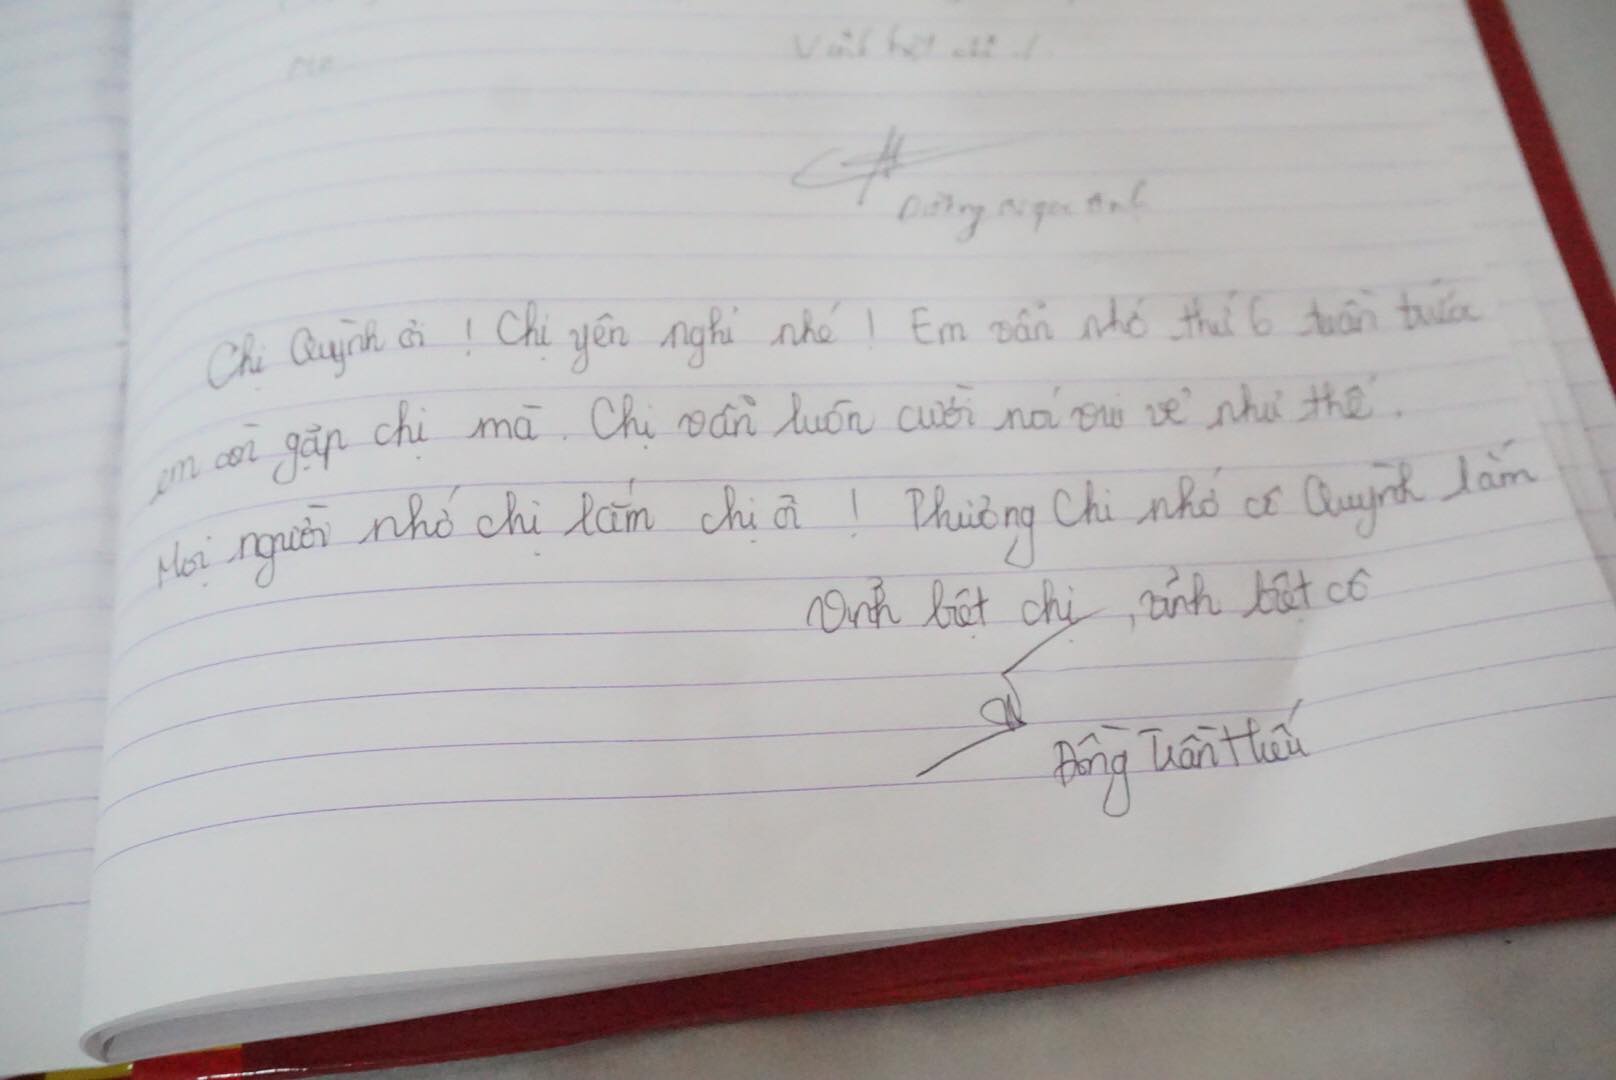 Vĩnh biệt chị!
Dương Ngọc Anh
Chị Quỳnh ơi! Chị yên nghỉ nhé! Em vẫn nhớ thứ 6 tuần trước
em còn gặp chị mà. Chị vẫn luôn cười nói vui vẻ như thế.
Mọi người nhớ chị lắm chị ơi! Phương Chi nhớ cô Quỳnh lắm
Vĩnh biệt chị, vĩnh biệt cô
Đồng Trần Hiếu